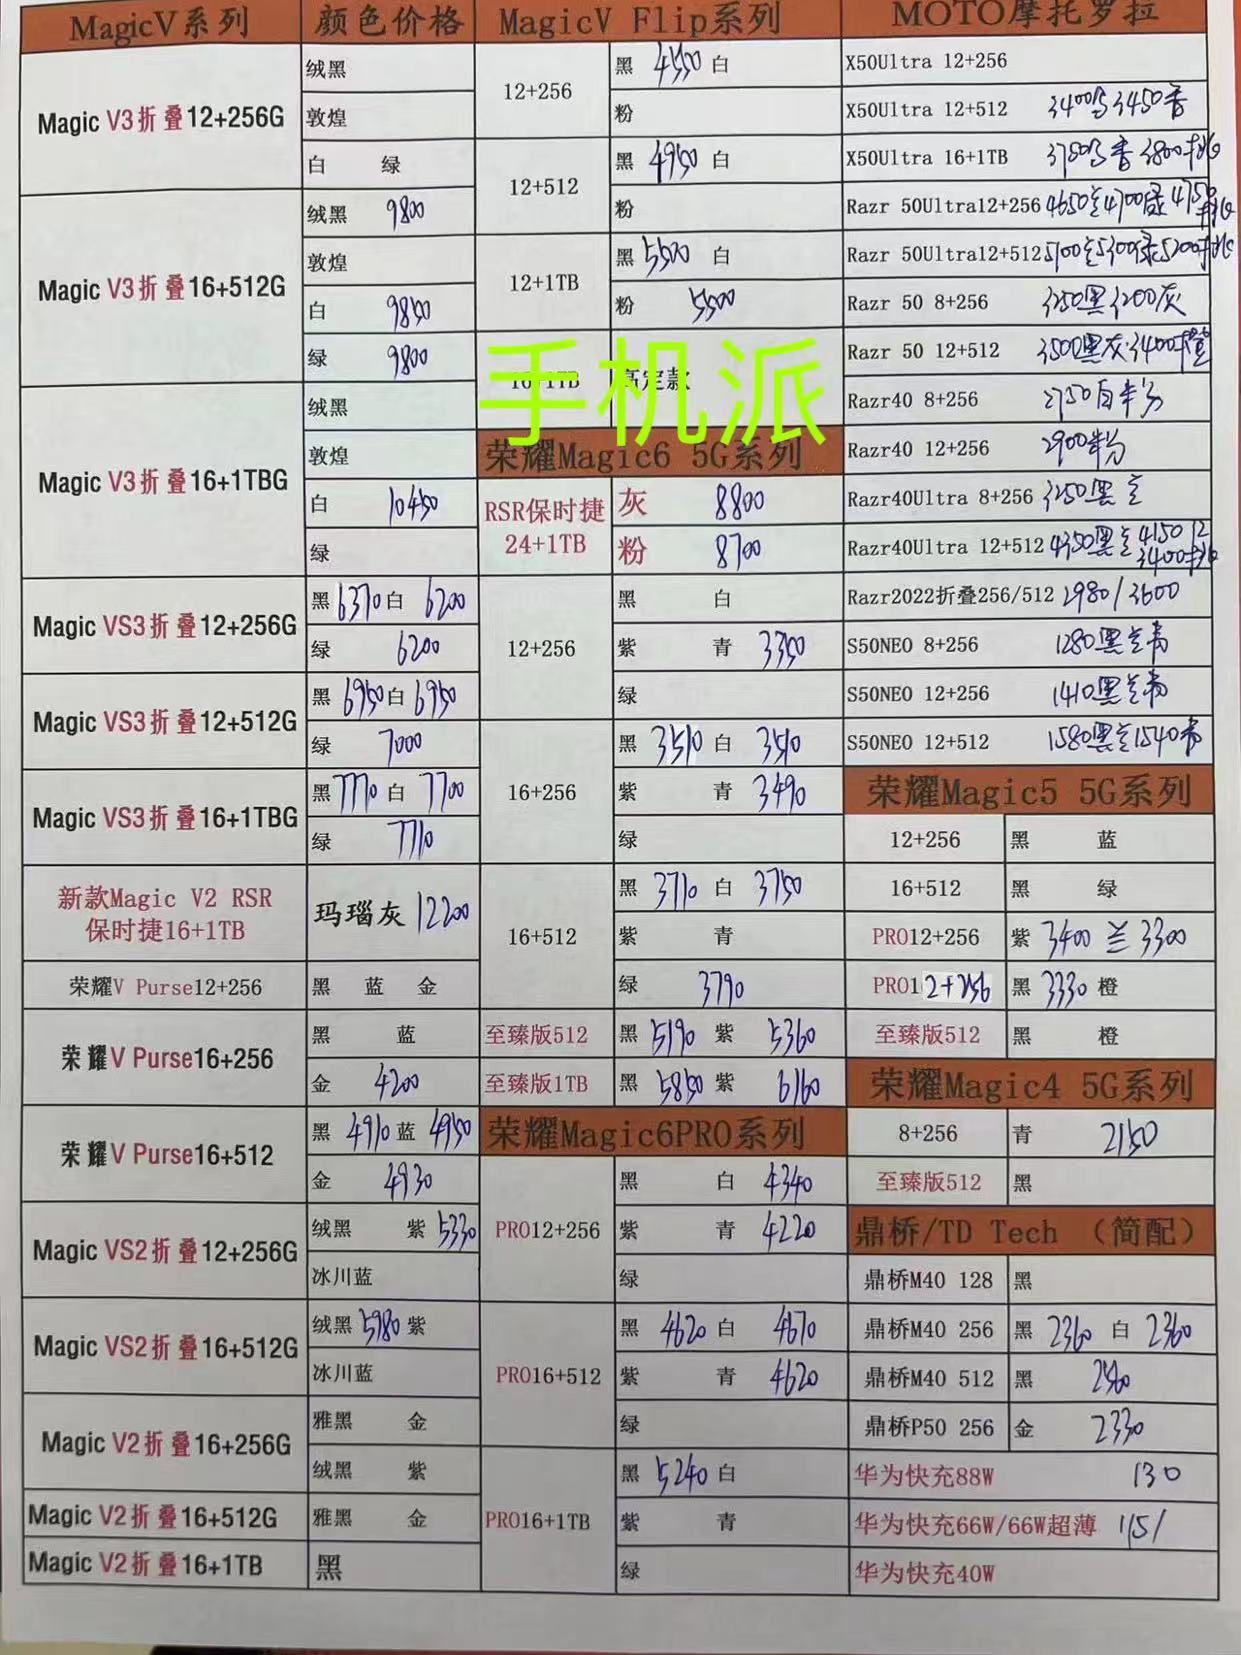 MagicV系列 颜色价格
Magic V3折叠12+256G
绒黑
敦煌
白 绿
Magic V3折叠16+512G
绒黑 9800
敦煌
白 9850
绿 9800
Magic V3折叠16+1TBG
绒黑
敦煌
白 10450
绿
Magic VS3折叠12+256G
黑 6370 白 6200
绿 6200
Magic VS3折叠12+512G
黑 6950 白 6950
绿 7000
Magic VS3折叠16+1TBG
黑 7710 白 7700
绿 7710
新款Magic V2 RSR
保时捷16+1TB
玛瑙灰 12200
荣耀V Purse12+256 黑 蓝 金
荣耀V Purse16+256
黑 蓝
金 4200
荣耀V Purse16+512
黑 4910 蓝 4950
金 4930
Magic VS2折叠12+256G
绒黑 紫 5330
冰川蓝
Magic VS2折叠16+512G
绒黑 5980 紫
冰川蓝
Magic V2折叠16+256G
雅黑 金
绒黑 紫
Magic V2折叠16+512G 雅黑 金
Magic V2折叠16+1TB 黑
MagicV Flip系列
12+256
黑 4550 白
粉
12+512
黑 4950 白
粉
12+1TB
黑 5500 白
粉 5500
16+1TB 高定款
手机派
荣耀Magic6 5G系列
RSR保时捷
24+1TB
灰 8800
粉 8700
12+256
黑 白
紫 青 3350
绿
16+256
黑 3510 白 3510
紫 青 3490
绿
16+512
黑 3710 白 3750
紫 青
绿 3790
至臻版512 黑 5190 紫 5360
至臻版1TB 黑 5850 紫 6160
荣耀Magic6PRO系列
PRO12+256
黑 白 4340
紫 青 4220
绿
PRO16+512
黑 4620 白 4670
紫 青 4620
绿
PRO16+1TB
黑 5240 白
紫 青
绿
MOTO摩托罗拉
X50Ultra 12+256
X50Ultra 12+512 3400 3450
X50Ultra 16+1TB 3750 3800
Razr 50Ultra12+256 4650 4700 4750
Razr 50Ultra12+512 5100 5200
Razr 50 8+256 3250黑 3200灰
Razr 50 12+512 3500黑灰 3400
Razr40 8+256 2750白
Razr40 12+256 2900
Razr40Ultra 8+256 3250黑兰
Razr40Ultra 12+512 4350黑兰 4150 3400
Razr2022折叠256/512 2980/3600
S50NEO 8+256 1280黑兰
S50NEO 12+256 1410黑兰
S50NEO 12+512 1580黑兰1540
荣耀Magic5 5G系列
12+256 黑 蓝
16+512 黑 绿
PRO12+256 紫 3400 兰 3300
PRO12+256 黑 3330 橙
至臻版512 黑 橙
荣耀Magic4 5G系列
8+256 青 2150
至臻版512 黑
鼎桥/TD Tech （简配）
鼎桥M40 128 黑
鼎桥M40 256 黑 2360 白 2360
鼎桥M40 512 黑
鼎桥P50 256 金 2330
华为快充88W 130
华为快充66W/66W超薄
华为快充40W